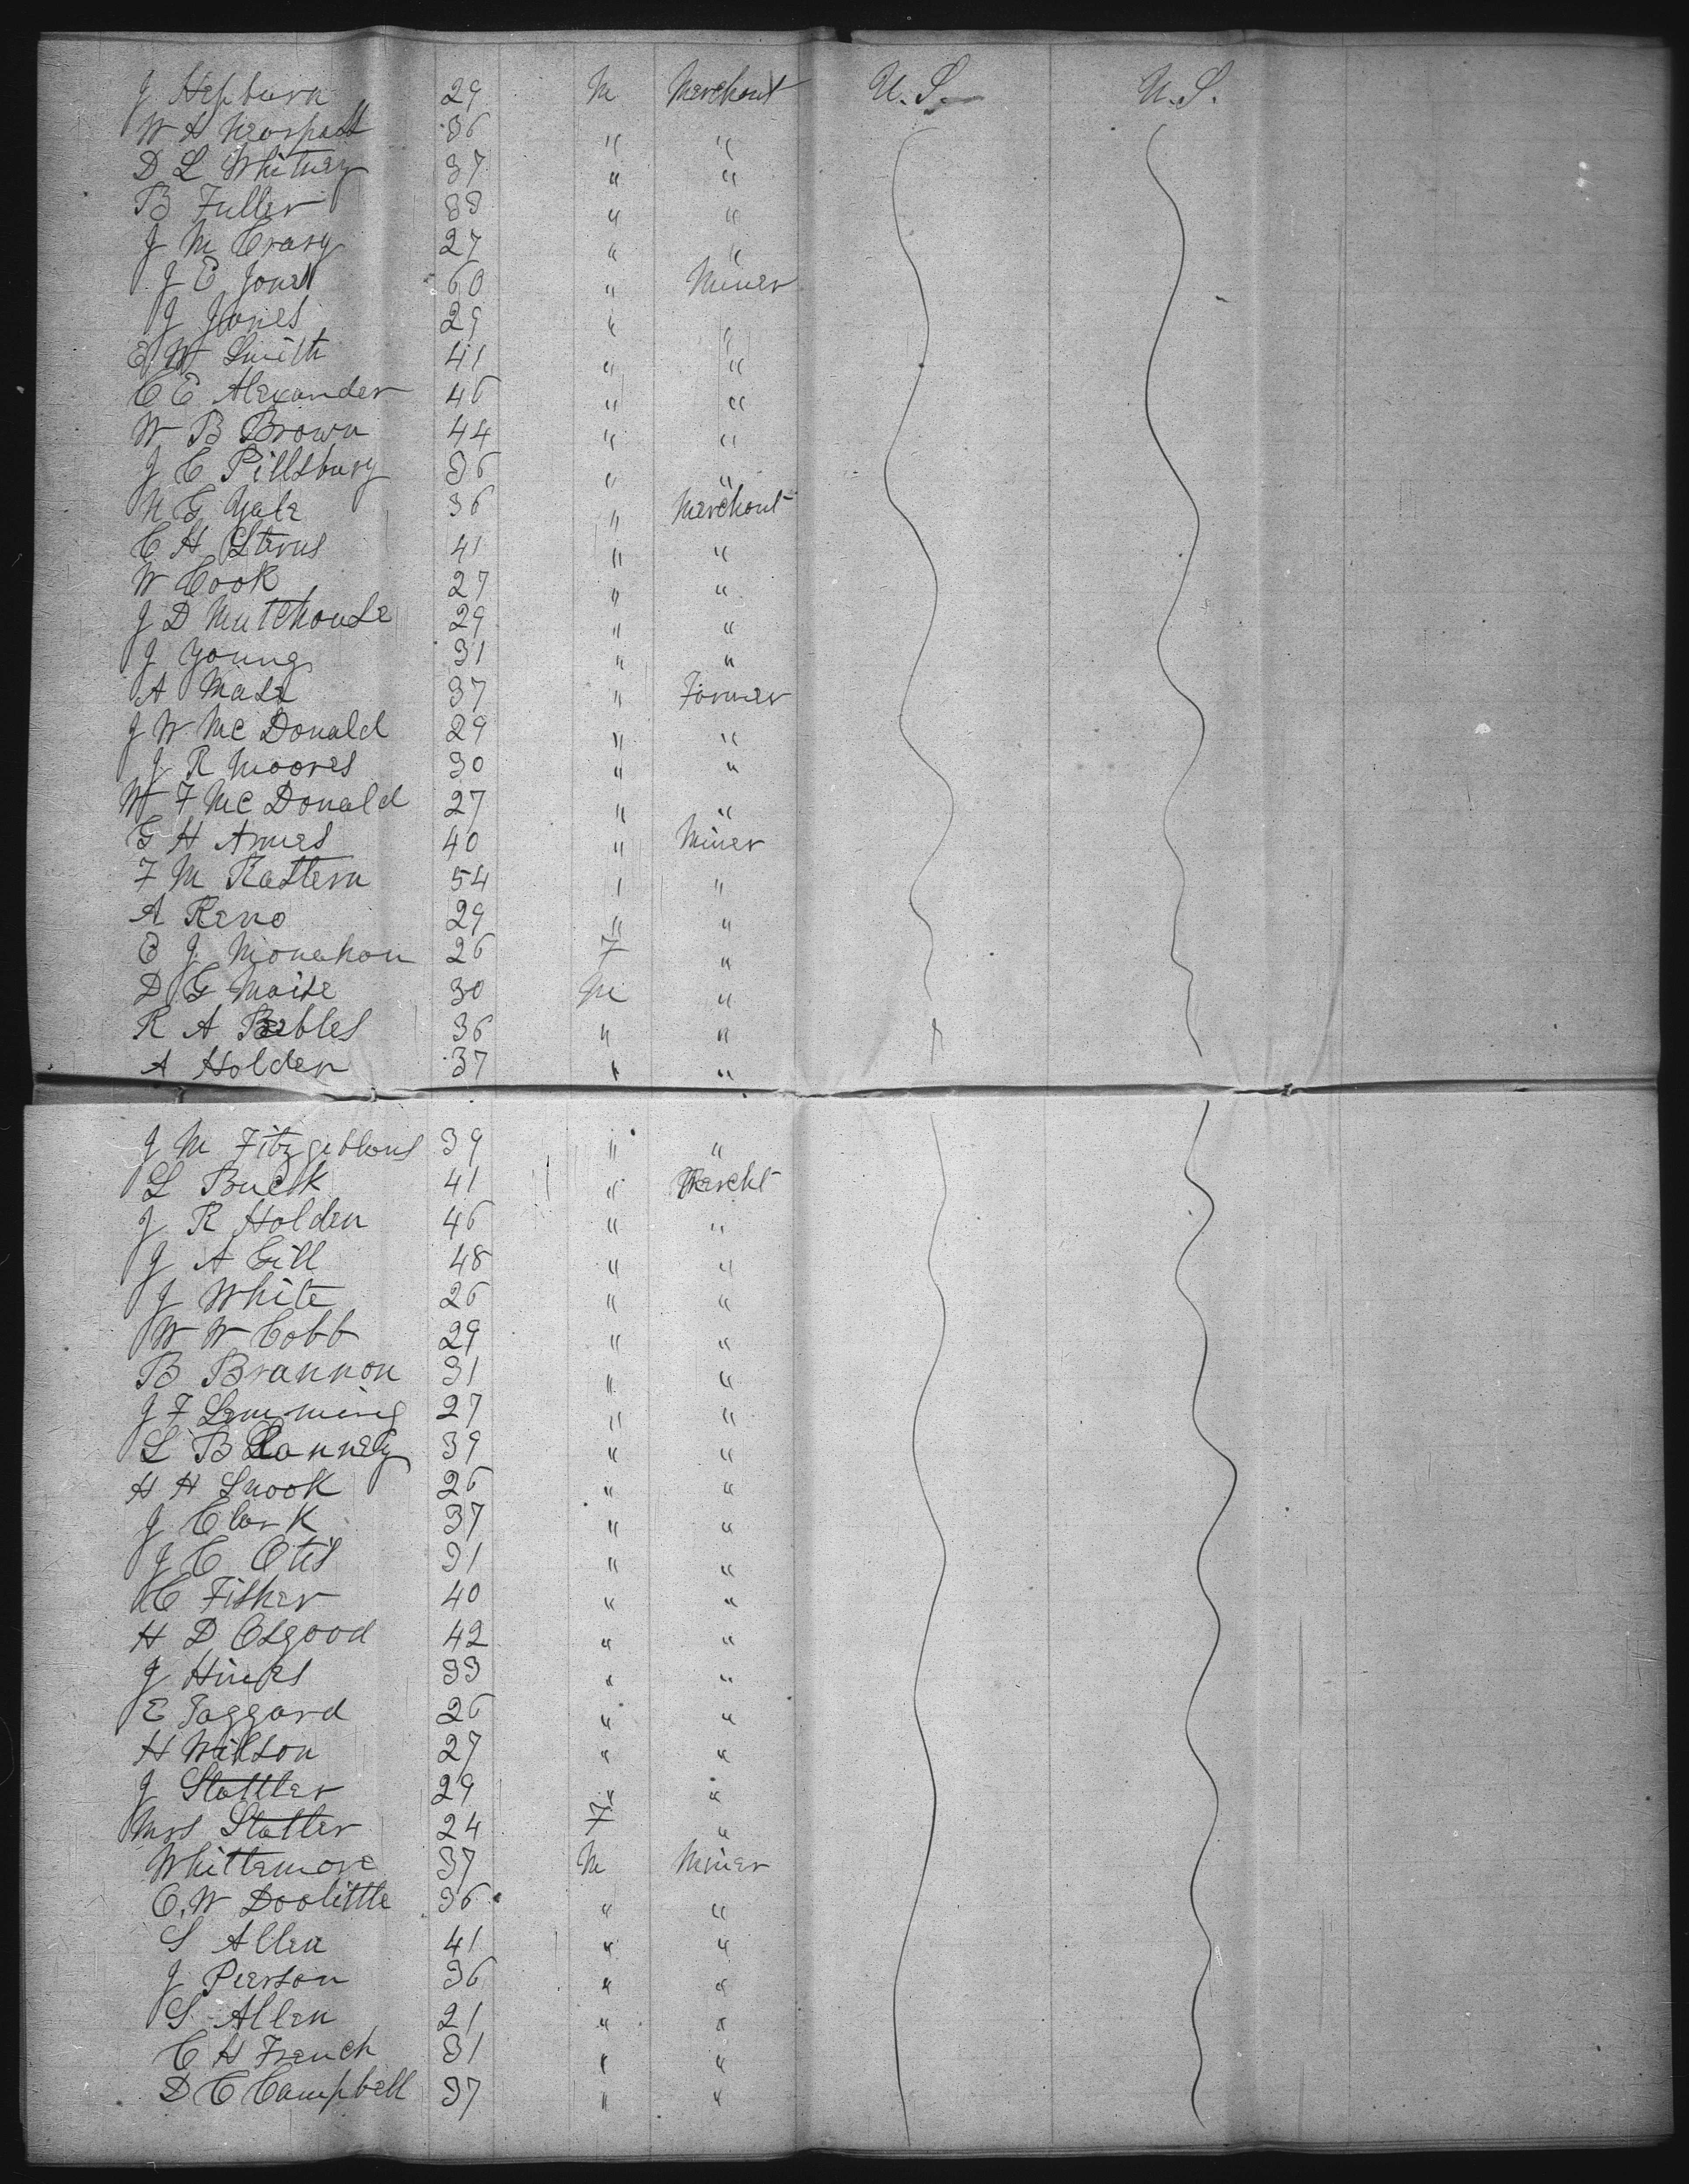 J Hepburn 29 M Merchant U.S. U.S.
W H 36 " "
D L Whitney 37 " "
B Fuller 38 " "
J M Crary 27 " "
J E Jones 60 " Miner
J Jones 29 " "
E W Smith 41 " "
C E Alexander 46 " "
W B Brown 44 " "
J C Pillsbury 36 " "
N G Yale 36 " Merchant
C H Sterns 41 " "
W Cook 27 " "
J D 29 " "
J Young 31 " "
A Mase 37 " Farmer
J W McDonald 29 " "
J R Moores 30 " "
W F McDonald 27 " "
G H Armes 40 " Miner
F M Rattern 54 " "
A Reno 29 " "
E J Monahan 26 F "
D G Moise 30 M "
R A Beebles 36 " "
A Holden 37 " "
J M Fitzgibbons 39 " "
L Buck 41 " Mercht
J R Holden 46 " "
J A Gill 48 " "
J White 26 " "
W W Cobb 29 " "
B Brannon 31 " "
J F Lemming 27 " "
L B Ranney 39 " "
H H Snook 26 " "
J Clark 37 " "
J C Otis 31 " "
C Fisher 40 " "
H D Osgood 42 " "
J Hines 33 " "
E Taggard 26 " "
H Wilson 27 " "
J Slattler 29 " "
Mrs Slatter 24 F "
Whittemore 37 M Miner
O.W Doolittle 36 " "
S Allen 41 " "
J Pierson 36 " "
S. Allen 21 " "
C H French 31 " "
D C Campbell 37 " "